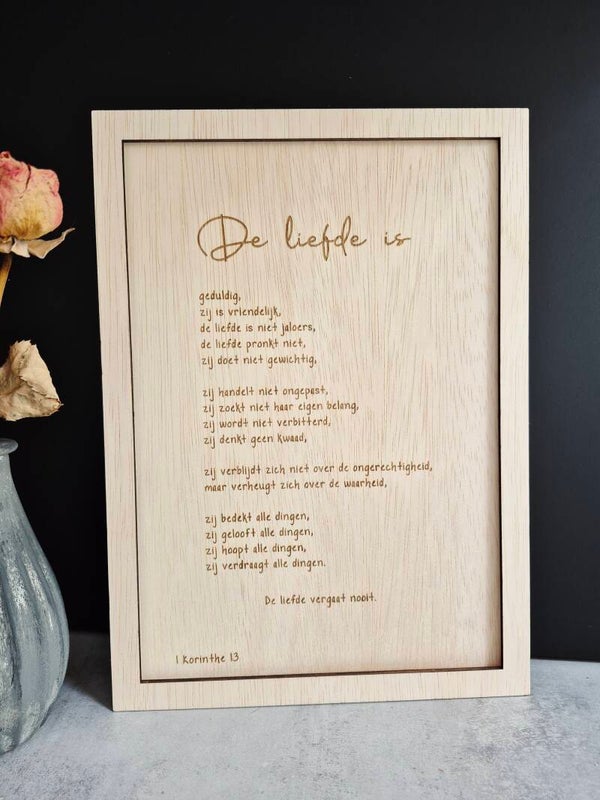 De liefde is
geduldig,
zij is vriendelijk,
de liefde is niet jaloers,
de liefde pronkt niet,
zij doet niet gewichtig,
zij handelt niet ongepast,
zij zoekt niet haar eigen belang,
zij wordt niet verbitterd,
zij denkt geen kwaad,
zij verblijdt zich niet over de ongerechtigheid,
maar verheugt zich over de waarheid,
zij bedekt alle dingen,
zij gelooft alle dingen,
zij hoopt alle dingen,
zij verdraagt alle dingen.
De liefde vergaat nooit.
1 Korinthe 13